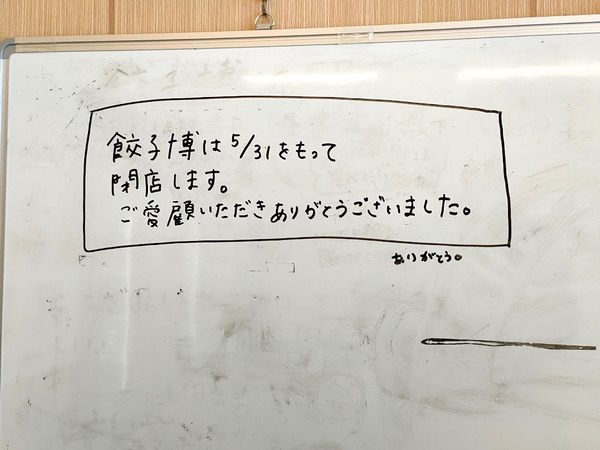 餃子博は5/31をもって
閉店します。
ご愛顧いただきありがとうございました。
ありがとう。